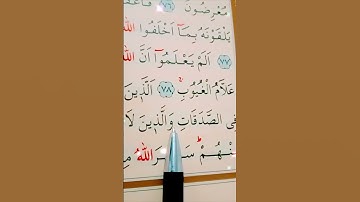 مُعْرِضُونَ ﴿٧٦﴾ فَاَعْقَ
يَلْقَوْنَهُ بِمَآ اَخْلَفُوا اللّٰهَ
﴿٧٧﴾ اَلَمْ يَعْلَمُوٓا اَنَّ اللّٰهَ
عَلَّامُ الْغُيُوبِ ﴿٧٨﴾ اَلَّذِينَ
فِى الصَّدَقَاتِ وَالَّذِينَ لَا
مِنْهُمْ سَخِرَ اللّٰهُ مِنْ